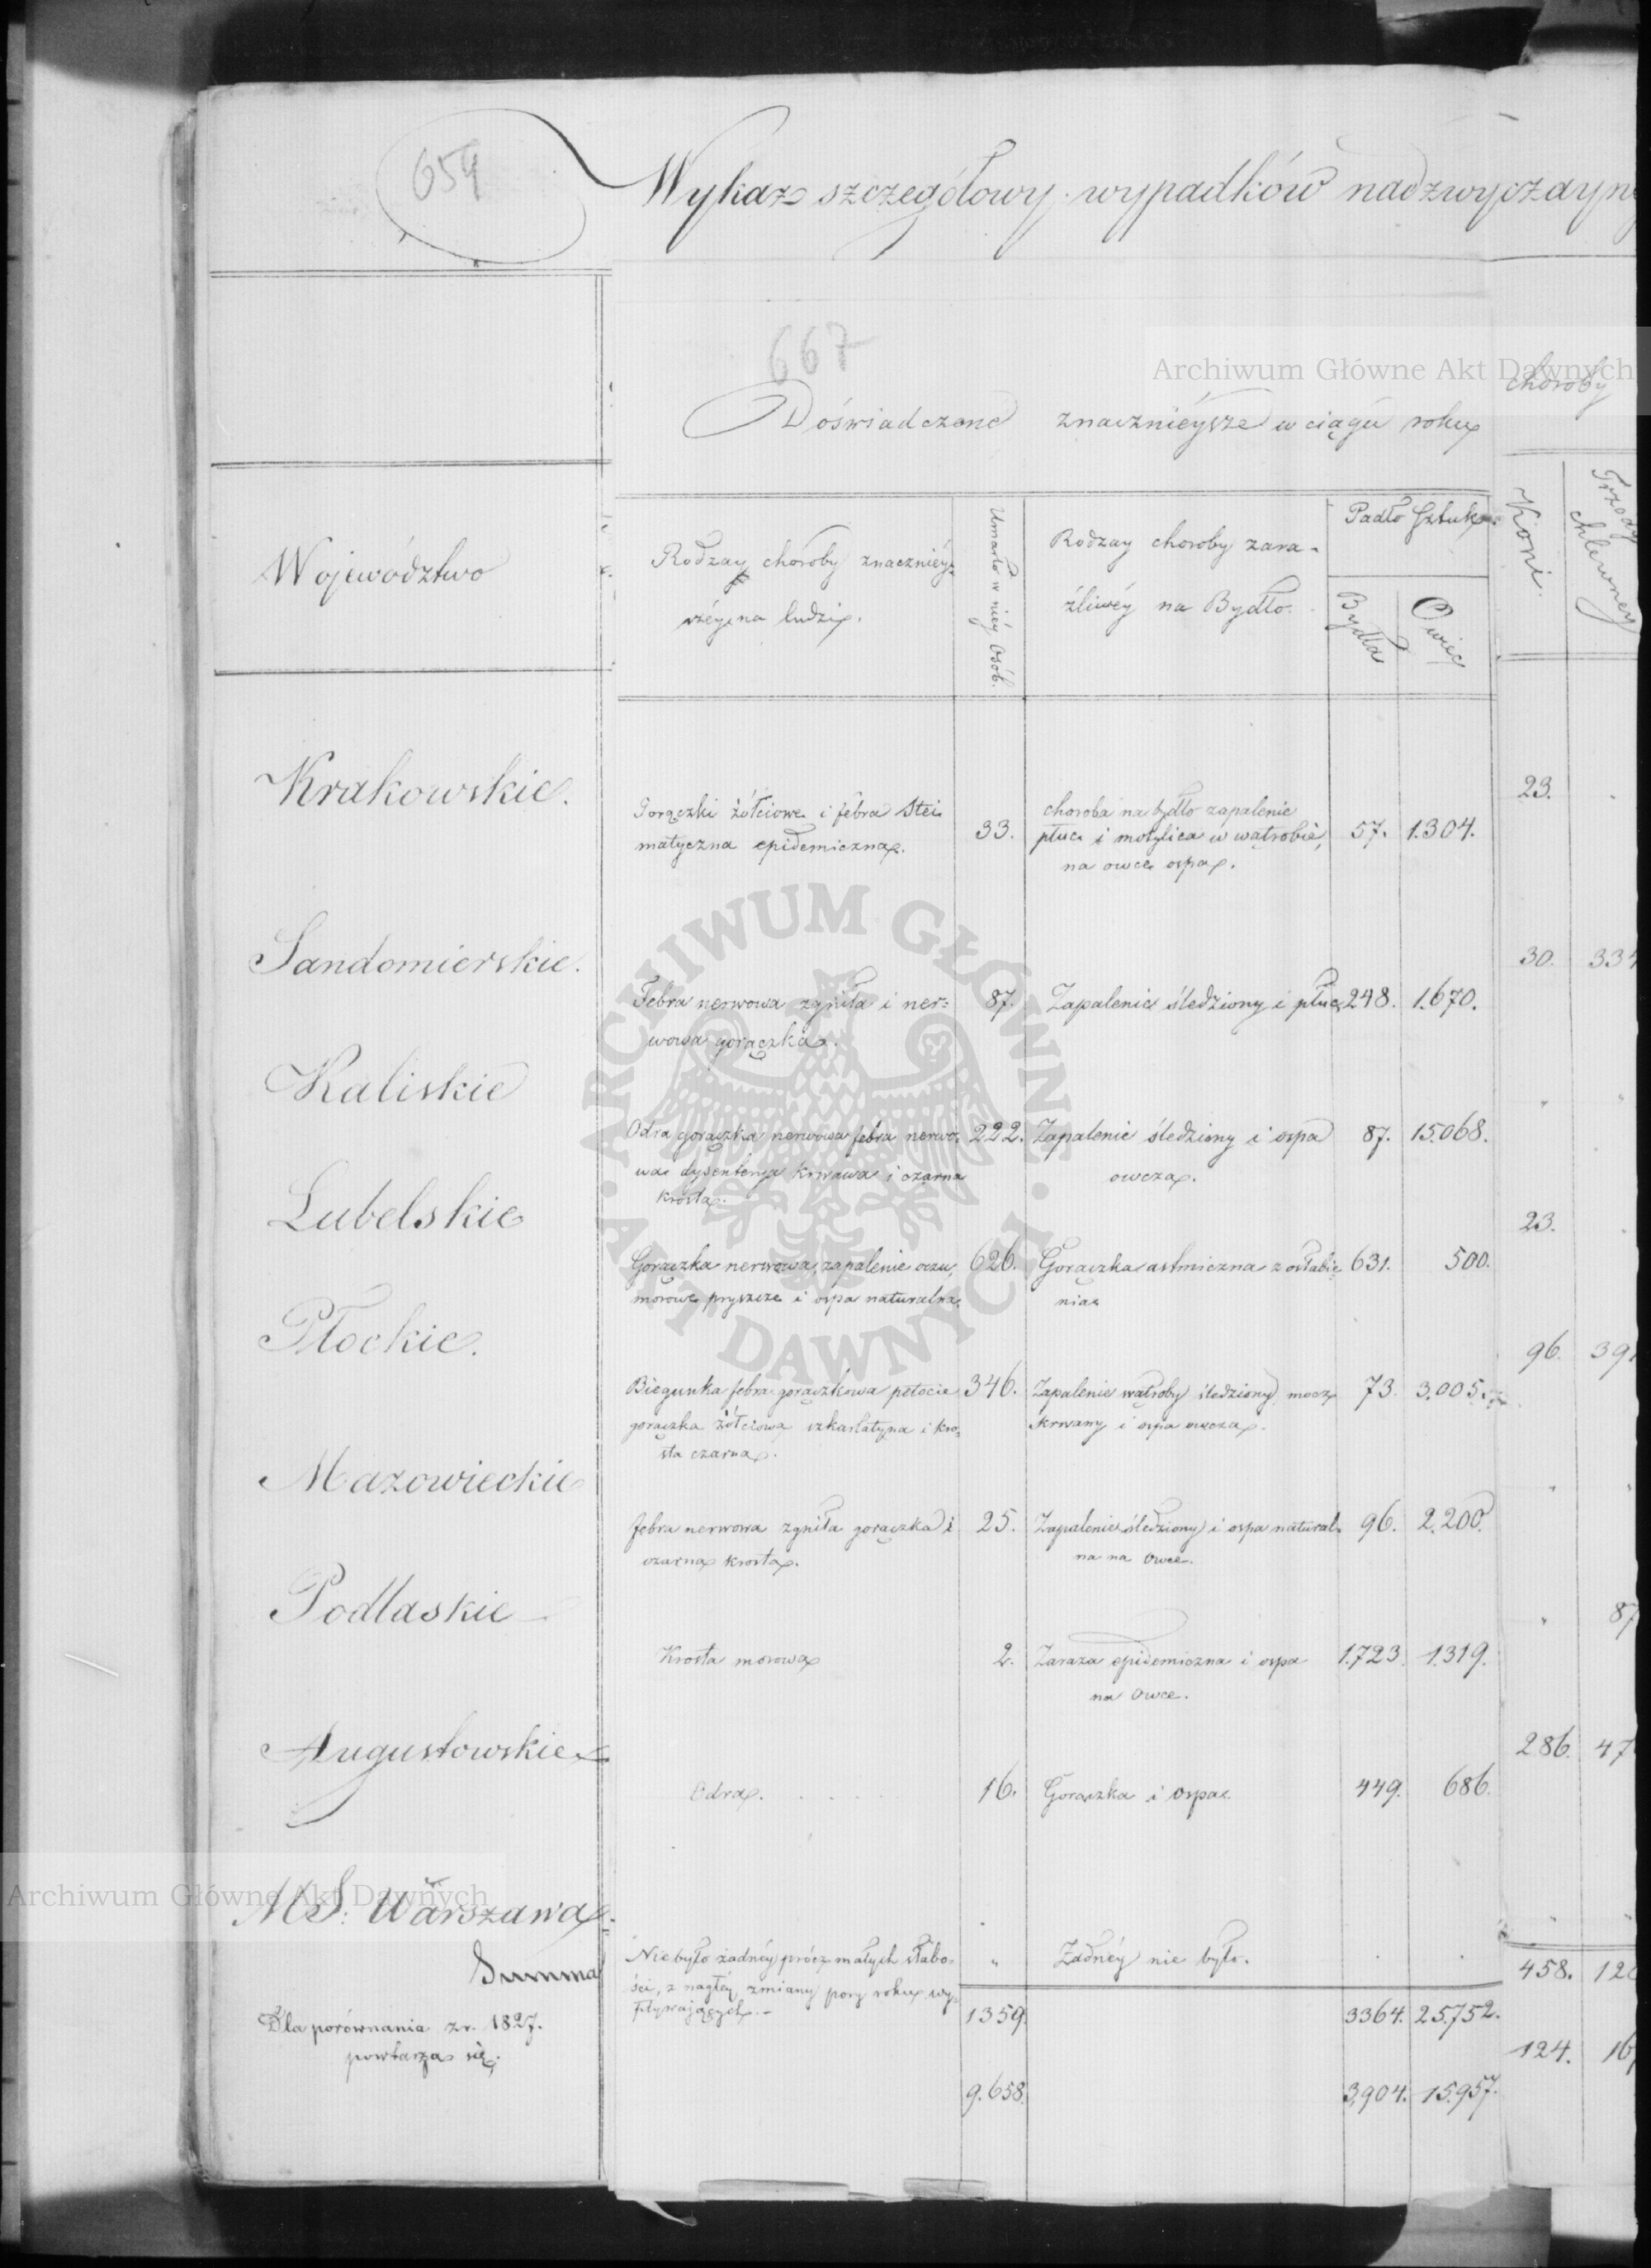 659
Wykaz szczegółowy wypadków nadzwyczayn
667
Archiwum Główne Akt Dawnych
choroby
Doświadczone znacznieysze w ciągu roku
Województwo
Rodzay choroby znaczniéy-
széy na ludzi.
Umarło w niéy Osób.
Rodzay choroby zara-
źliwéy na Bydło.
Padło Sztuk
Bydła
Owiec
Koni.
Trzody
chlewney
Krakowskie.
Gorączki żółciowe i febra
matyczna epidemiczna.
33.
choroba na bydło zapalenie
płuc i motylica w wątrobie,
na owce ospa.
57. 1.304.
23.
Sandomierskie.
Febra nerwowa zgniła i ner=
wowa gorączka.
87.
Zapalenie śledziony i płuc
248. 1.670.
30. 334
Kaliskie
Odra gorączka nerwowa febra nerwo-
wa dysenterya krwawa i czarna
krosta.
222.
Zapalenie śledziony i ospa
owcza.
87. 15.068.
Lubelskie
Gorączka nerwowa, zapalenie oczu,
morowe pryszcze i ospa naturalna.
626.
Gorączka astmiczna z osłabie-
nia
631. 500.
23.
Płockie.
Biegunka febra gorączkowa petocie
gorączka żółciowa szkarlatyna i kro-
sta czarna.
346.
Zapalenie wątroby śledziony, mocz
krwawy i ospa owcza.
73. 3.005.
96. 391
Mazowieckie
febra nerwowa zgniła gorączka i
czarna krosta.
25.
Zapalenie śledziony i ospa natural-
na na owce.
96. 2.200.
Podlaskie
Krosta morowa
2.
Zaraza epidemiczna i ospa
na owce.
1.723. 1.319.
87
Augustowskie
Odra. . . . . .
16.
Gorączka i ospa.
449. 686.
286. 47
Archiwum Główne Akt Dawnych
M S: Warszawa.
Nie było żadnéy prócz małych słabo-
ści, z nagłéy zmiany pory roku wy-
pływających.-
"
Żadnéy nie było.
Summa
1359.
3364. 25.752.
458. 120
Dla porównania z r. 1827.
powtarza się.
9.658.
3,904. 15.957.
124. 16
ARCHIWUM GŁÓWNE
AKT DAWNYCH